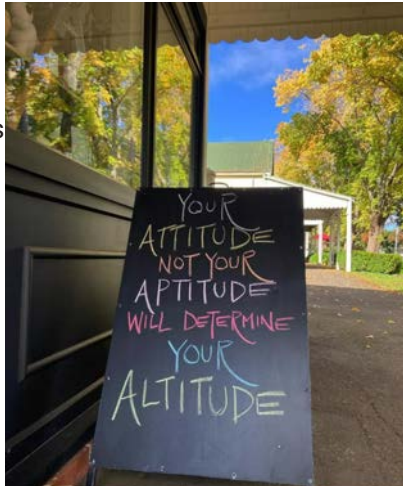 YOUR
ATTITUDE
NOT YOUR
APTITUDE
WILL DETERMINE
YOUR
ALTITUDE